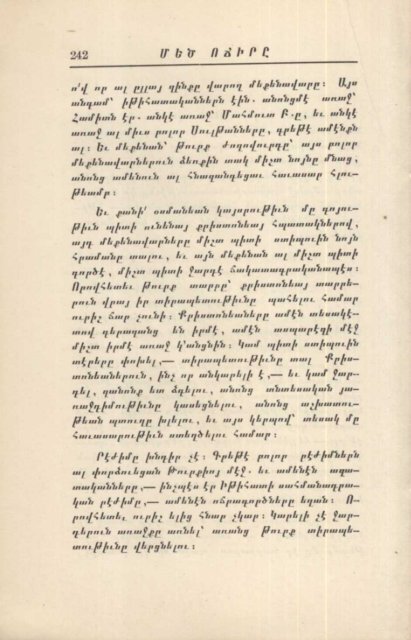 242 ՄԵԾ ՈՃԻՐԸ
ո՛վ որ ալ ըլլայ զինքը վարող մեքենավարը։ Այս
անգամ՝ իթիհատականներն էին. անոնցմէ առաջ՝
Համիտն էր. անկէ առաջ՝ Մահմուտ Բ.ը, եւ անկէ
առաջ ալ միւս բոլոր Սուլթանները, գրեթէ ամէնքն
ալ։ Եւ մեքենան՝ Թուրք ժողովուրդը՝ այս բոլոր
մեքենավարներուն ձեռքին տակ միշտ նոյնը մնաց,
անոնց ամենուն ալ հնազանդեցաւ հաւասար հլու-
թեամբ։
Եւ քանի՛ օսմանեան կայսրութիւն մը գոյու-
թիւն պիտի ունենայ քրիստոնեայ հպատակներով,
այդ մեքենավարները միշտ պիտի ստիպուին նոյն
հրամանը տալու, եւ այն մեքենան ալ միշտ պիտի
գործէ, միշտ պիտի ջարդէ ճակատագրականապէս։
Որովհետեւ Թուրք տարրը՝ քրիստոնեայ տարրե-
րուն վրայ իր տիրապետութիւնը պահելու համար
ուրիշ ճար չունի։ Քրիստոնեաները ամէն տեսակէ-
տով գերազանց են իրմէ, ամէն ասպարէզի մէջ
միշտ իրմէ առաջ կ՚անցնին։ Կամ պիտի ստիպուին
տէրերը փոխել,— տիրապետութիւնը տալ Քրիս-
տոնեաներուն, ինչ որ անկարելի է,— եւ կամ ջար-
դել, զանոնք ետ ձգելու, անոնց տնտեսական յա-
ռաջդիմութիւնը կասեցնելու, անոնց աշխատու-
թեան պտուղը խլելու, եւ այս կերպով՝ տեսակ մը
հաւասարութիւն ստեղծելու համար։
Րէժիմը խնդիր չէ։ Գրեթէ բոլոր րէժիմներն
ալ փորձուեցան Թուրքիոյ մէջ. եւ ամենէն ազա-
տականները,— ինչպէս էր Իթիհատի սահմանադրա-
կան րէժիմը,— ամենէն ոճրագործները եղան։ Ո-
րովհետեւ ուրիշ ելից հնար չկար։ Կարելի չէ ջար-
դերուն առաջքը առնել՝ առանց Թուրք տիրապե-
տութիւնը վերցնելու։